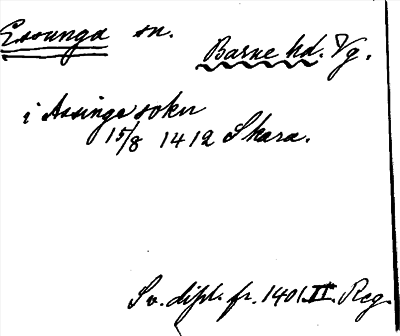 Essunga sn.
Barne hd. Vg.
i Assinge sokn
15/8 1412 Skara.
Sv. dipl. fr. 1401. II. Reg.